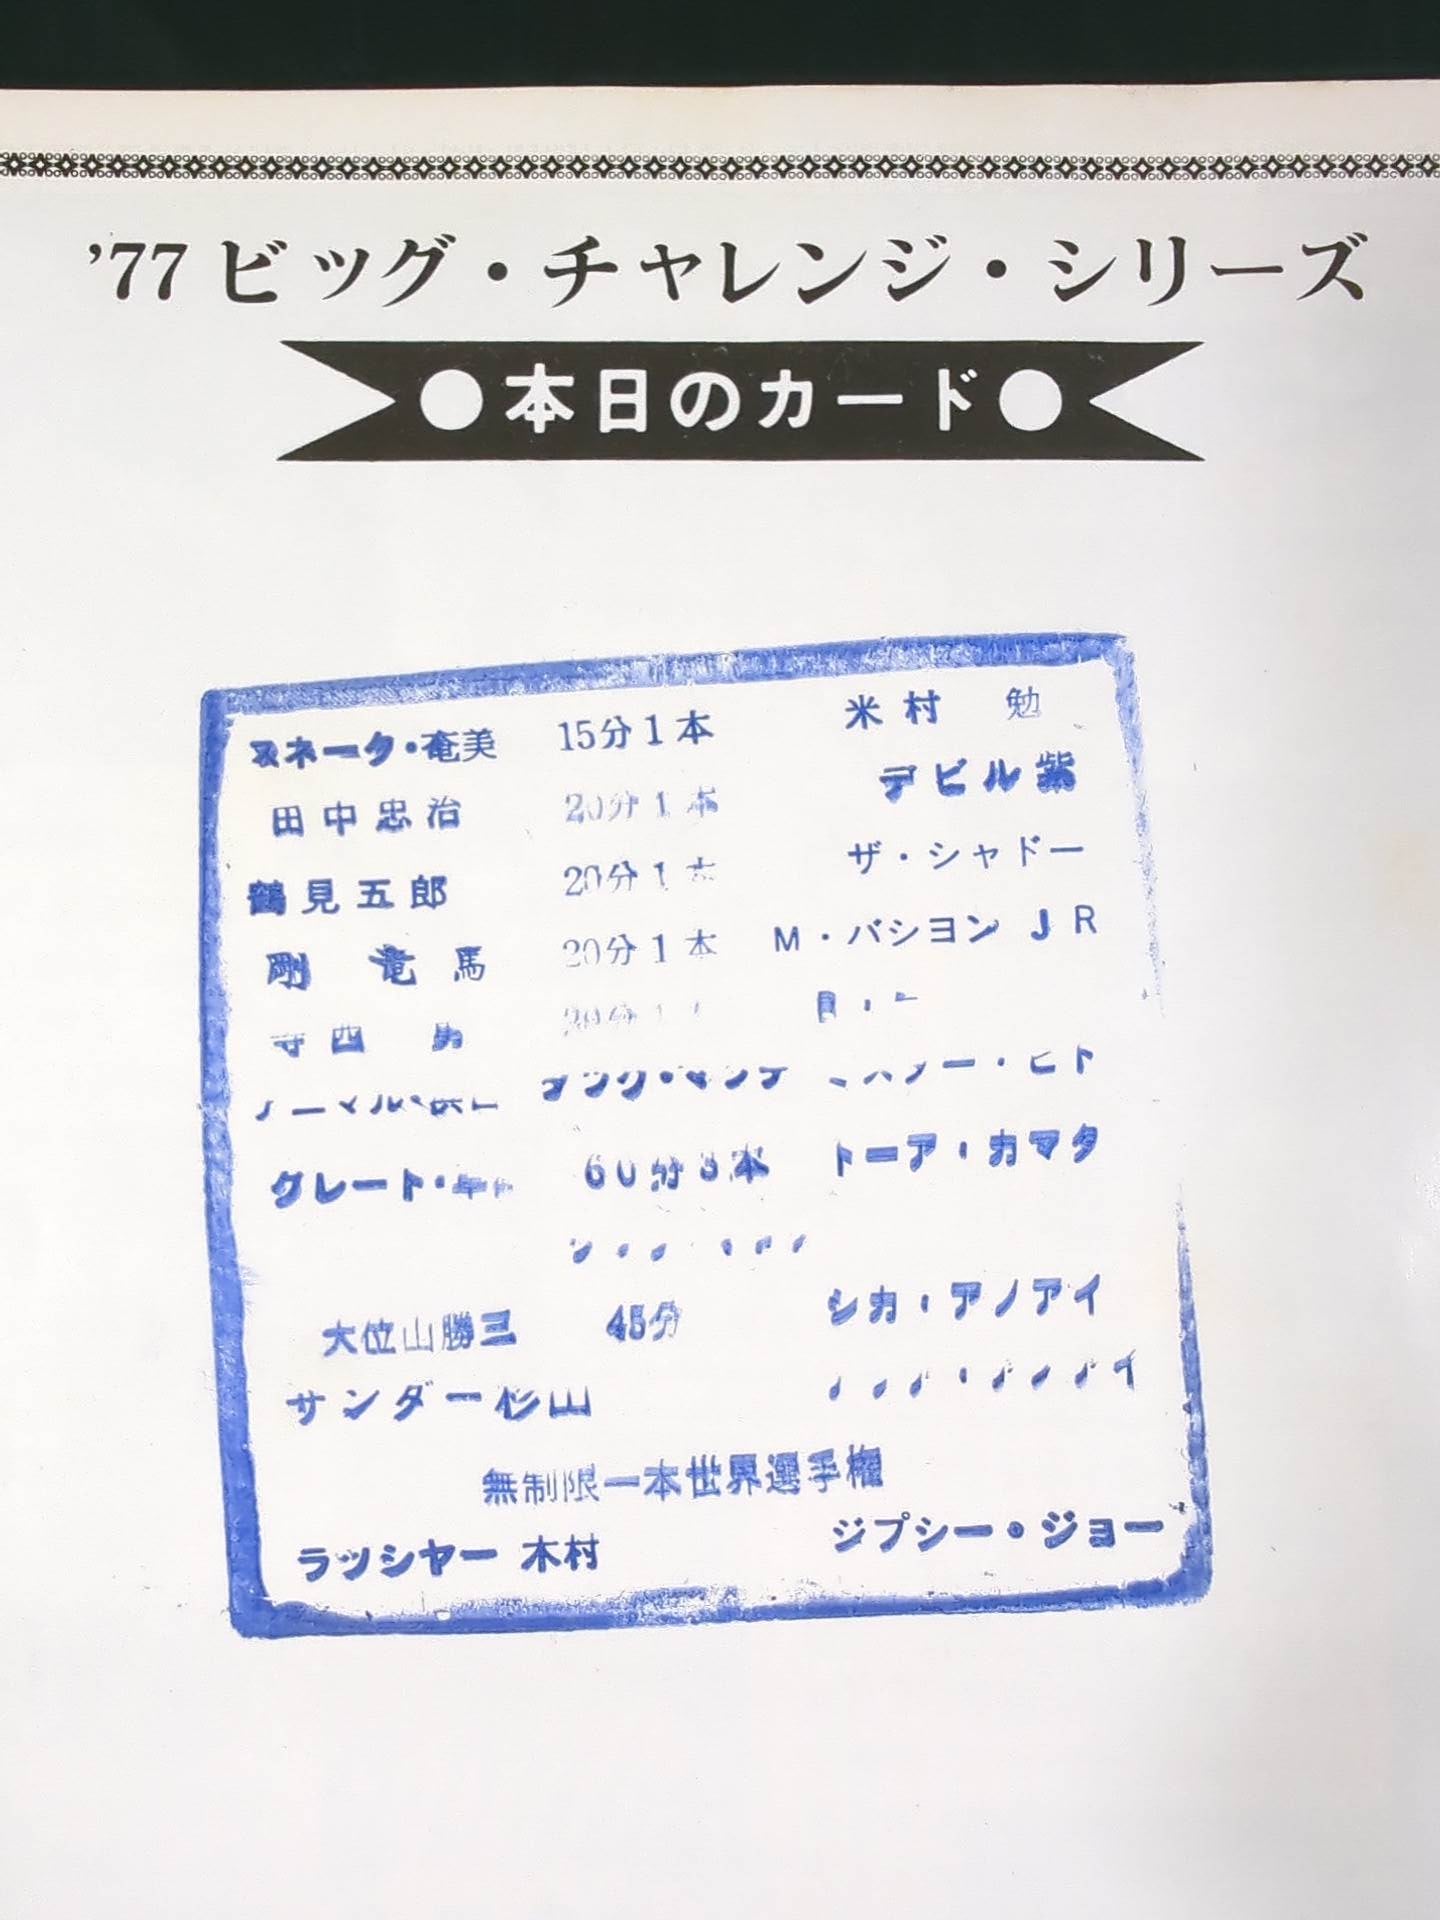 '77 ビッグ・チャレンジ・シリーズ
●本日のカード●
スネーク・奄美 15分1本 米村 勉
田中忠治 20分1本 デビル紫
鶴見五郎 20分1本 ザ・シャドー
剛 竜馬 20分1本 M・バショョン JR
寺西 勇
・ヒト
グレート・ 60分3本 トーア・カマタ
大位山勝三 45分 シカ・アノアイ
サンダー杉山
無制限一本世界選手権
ラッシャー 木村 ジプシー・ジョー